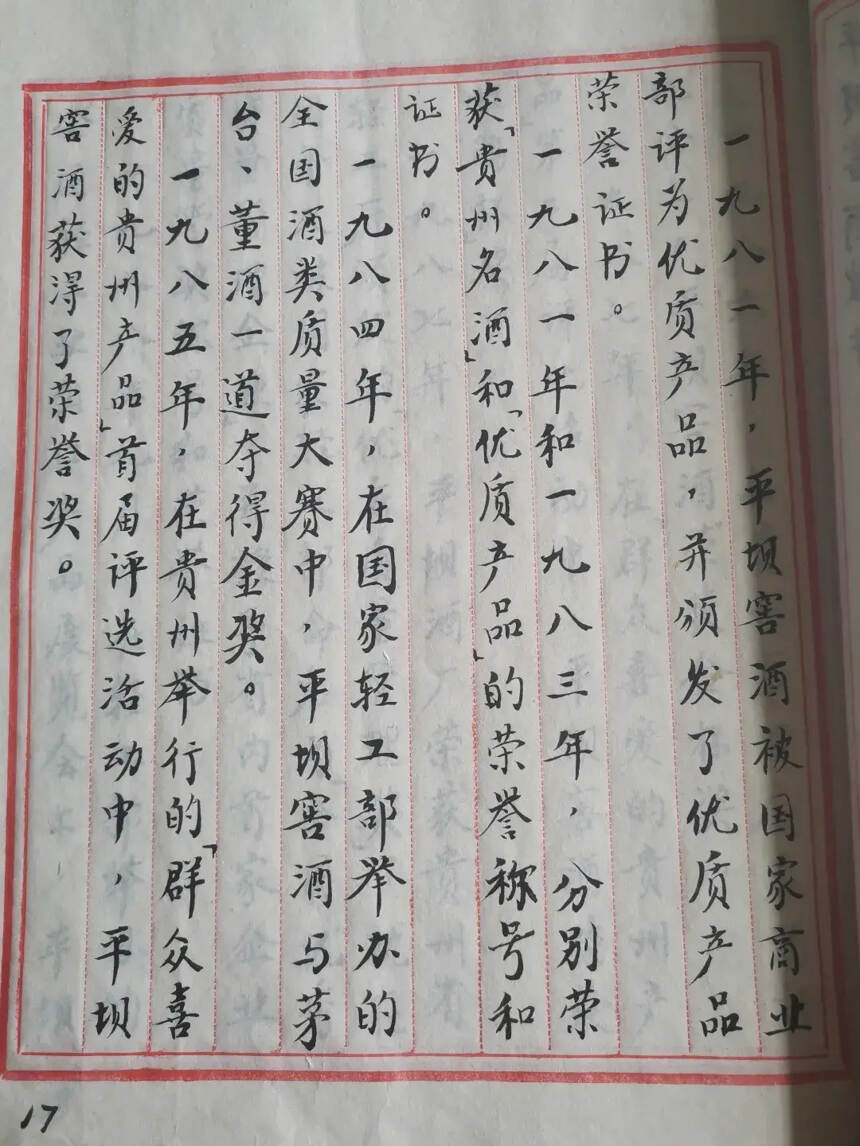 一九八一年，平坝窖酒被国家商业
部评为优质产品，并颁发了优质产品
荣誉证书。
一九八一年和一九八三年，分别荣
获「贵州名酒」和「优质产品」的荣誉称号和
证书。
一九八四年，在国家轻工部举办的
全国酒类质量大赛中，平坝窖酒与茅
台、董酒一道夺得金奖。
一九八五年，在贵州举行的「群众喜
爱的贵州产品」首届评选活动中，平坝
窖酒获得了荣誉奖。
17